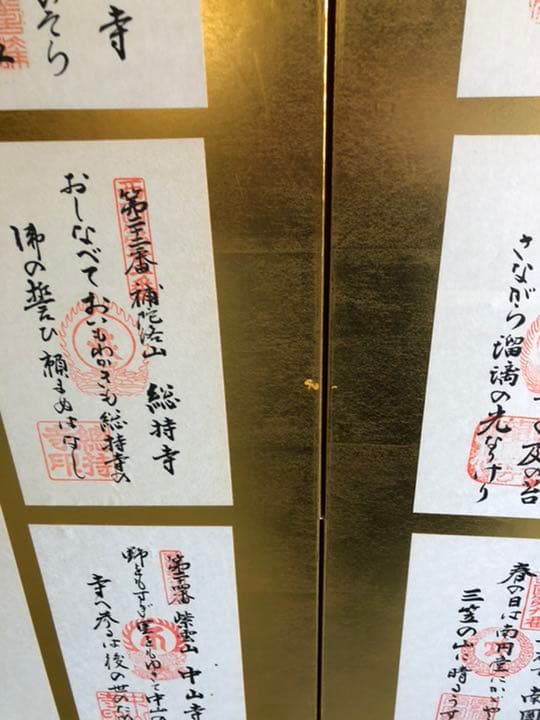 寺
第二十二番 補陀洛山 総持寺
おしなべておいもわかきも総持寺の
佛の誓ひ頼まぬはなし
総持寺印
さながら瑠璃の光なりけり
第二十四番 紫雲山 中山寺
野をもすぎ里をもゆきて中山の
寺へ参るは後の世のため
春の日は南円堂にかがや
三笠の山に晴るうす